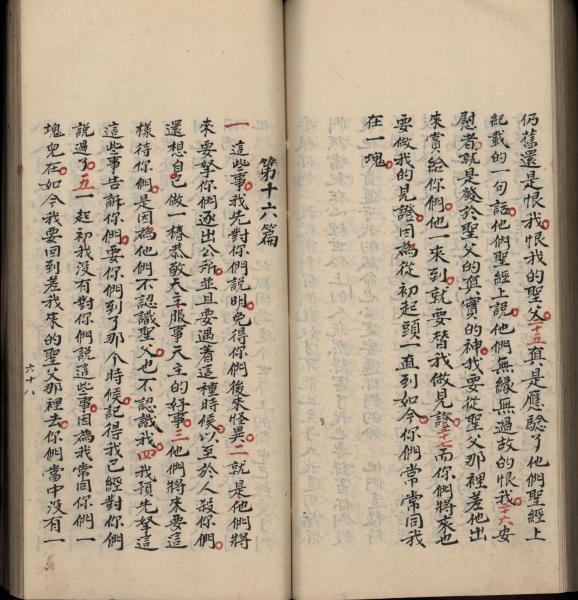 仍舊還是恨我恨我的聖父二十五真是應驗了他們聖經上
紀載的一句話他們聖經上說他們無緣無過故的恨我二十六安
慰者就是發於聖父的真實的神我要從聖父那裡差他出
來賣給你們他一來到就要替我做見證二十七而你們將來也
要做我的見證因為從初起頭一直到如今你們常常同我
在一塊
第十六篇
一這些事我先對你們說明免得你們後來怪異二就是他們將
來要拏你們逐出公所並且要遇着這種時候以至於人殺你們
還想自己做一樁恭敬天主服事天主的好事三他們將來要這
樣待你們是因為他們不認識聖父也不認識我四我預先拏這
這些事告訴你們要你們到了那个時候記得我已經對你們
說過了五一起初我沒有對你們說這些事因為我常同你們一
塊兒在如今我要回到差我來的聖父那裡去你們當中沒有一
六十八